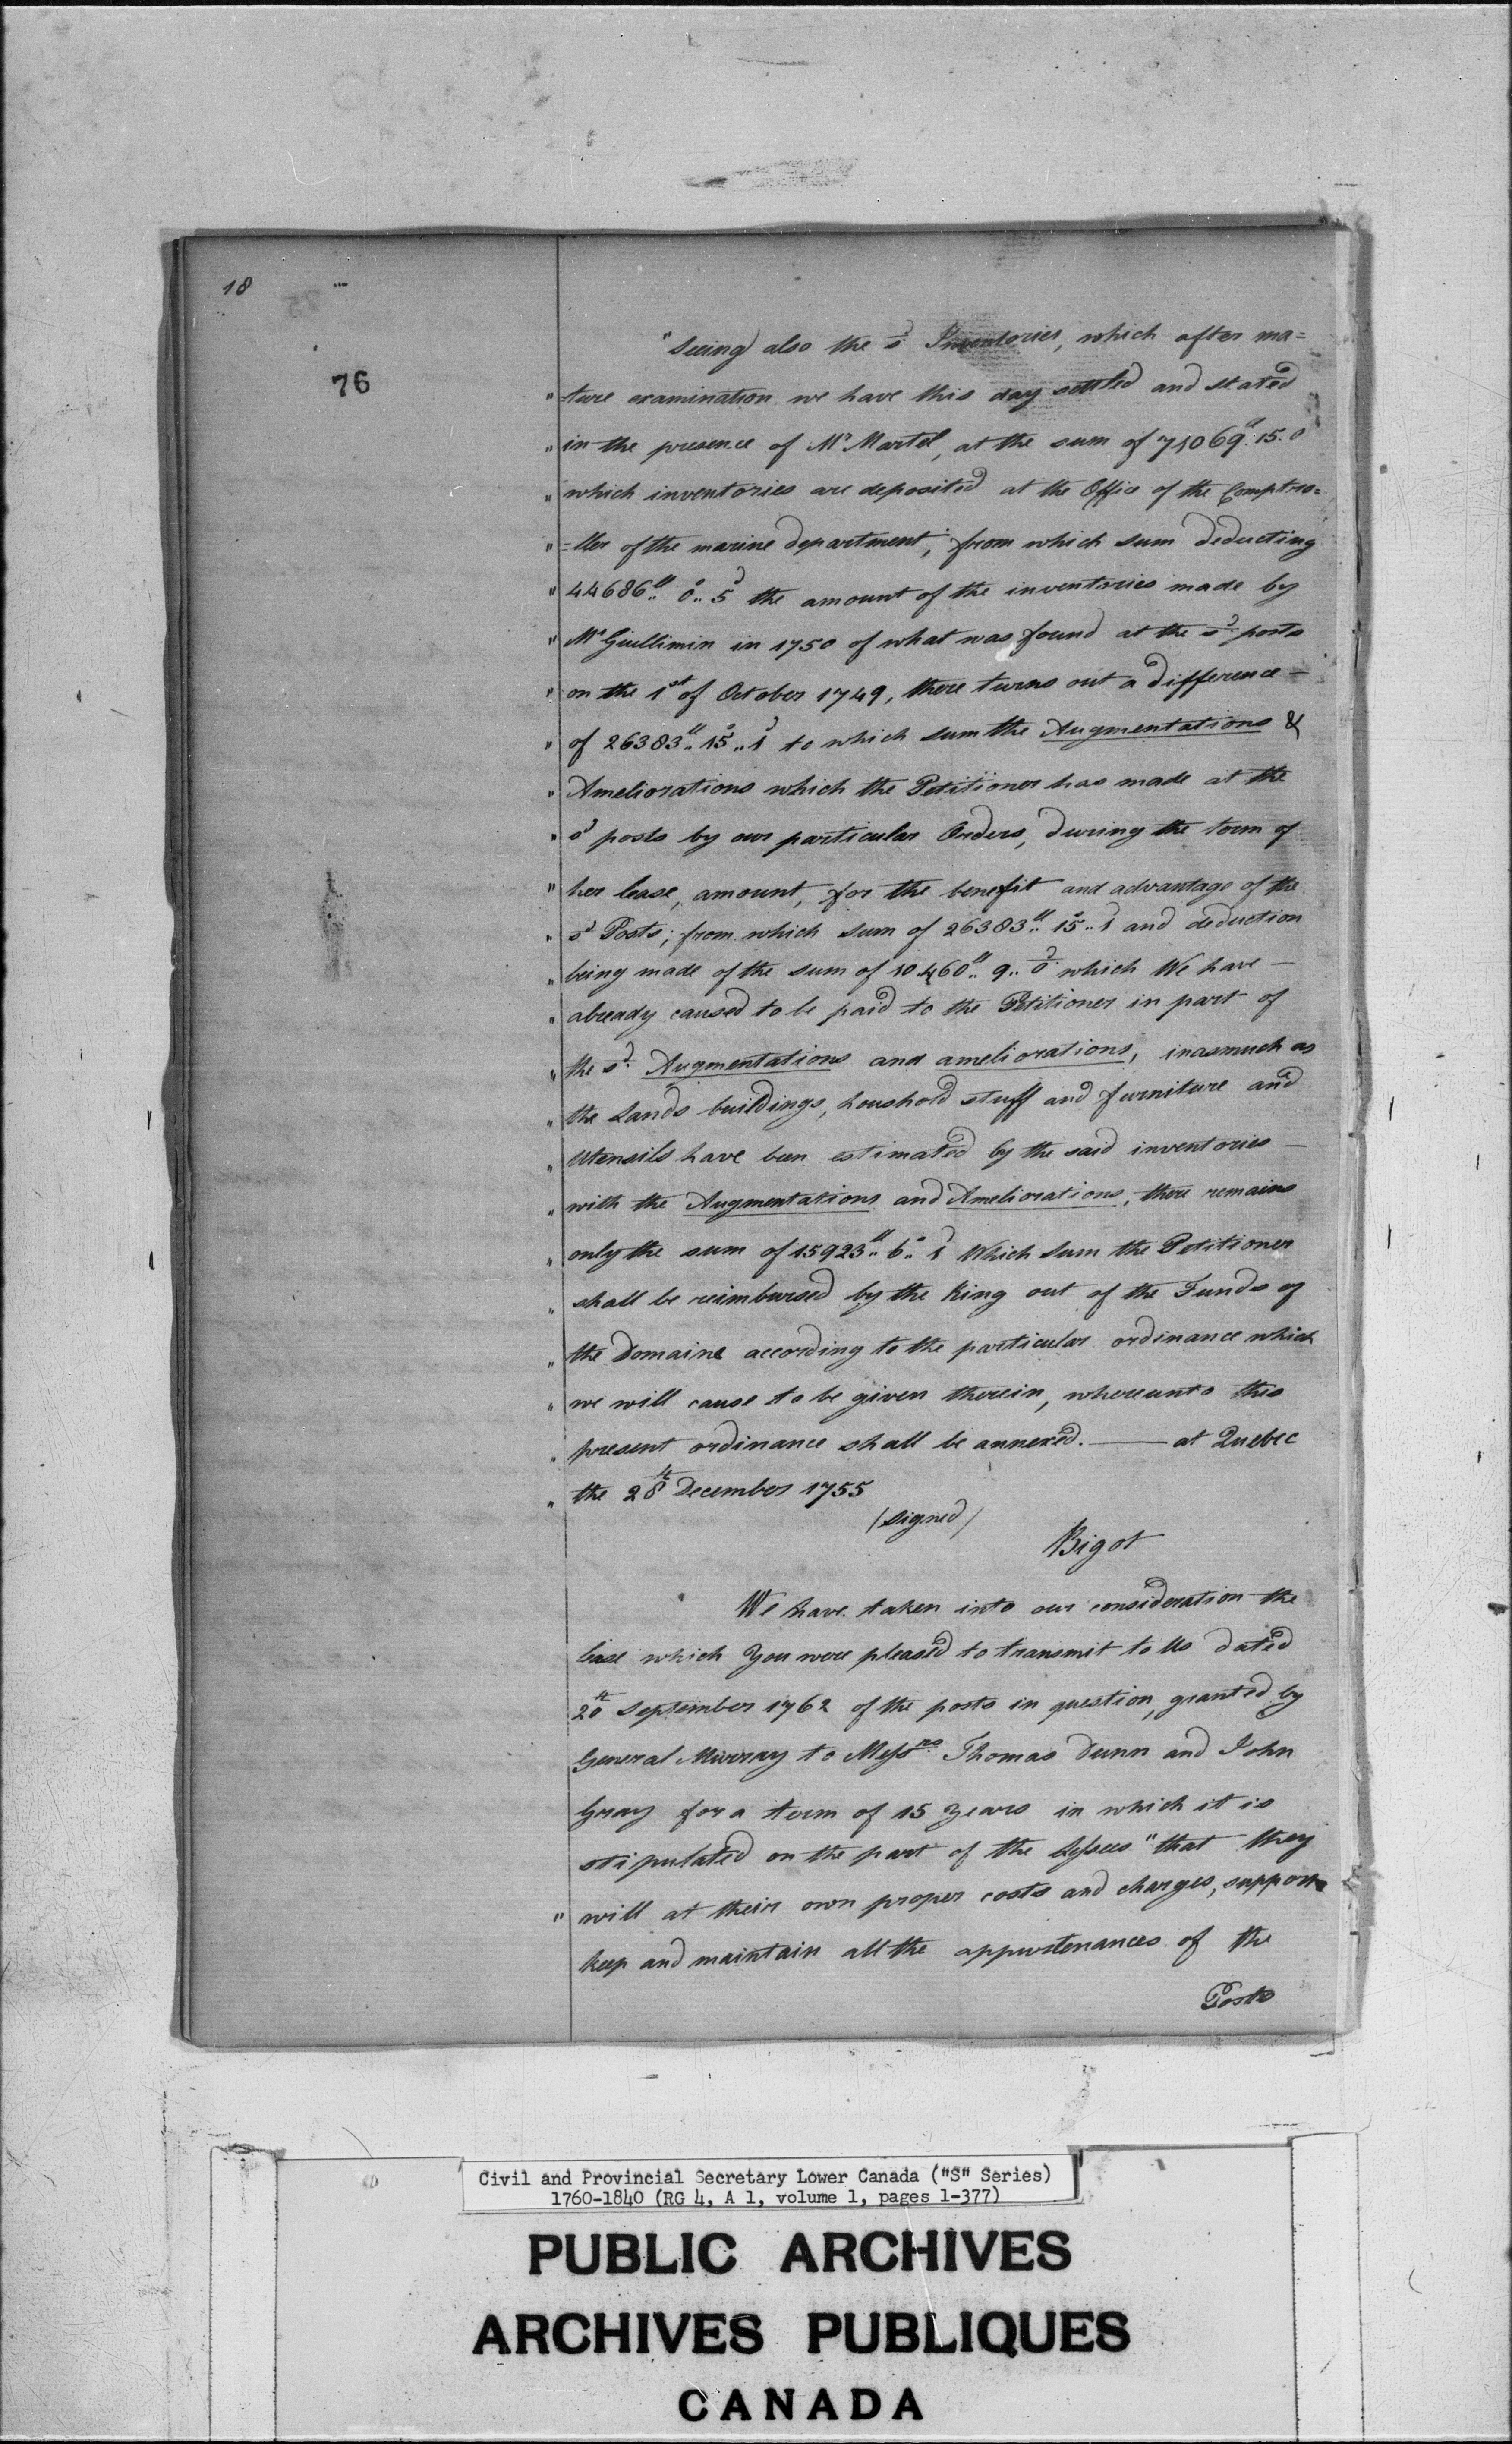 18
76
"Seeing also the sd Inventories, which after ma=
" =ture examination we have this day settled and stated
" in the presence of Mr Martel, at the sum of 71069ll. 15. 0
" which inventories are deposited at the Office of the Comptro=
" =ller of the marine department; from which sum deducting
" 44686ll.. 0s.. 5d the amount of the inventories made by
" Mr Guillimin in 1750 of what was found at the sd posts
" on the 1st of October 1749, there turns out a difference —
" of 26383ll.. 15s.. 1d to which sum the Augmentations &
" Ameliorations which the Petitioner has made at the
" sd posts by our particular Orders, during the term of
" her lease, amount, for the benefit and advantage of the
" sd Posts; from which sum of 26383ll.. 15s.. 1d and deduction
" being made of the sum of 10460ll.. 9.. 0d which We have —
" already caused to be paid to the Petitioner in part of
" the sd. Augmentations and ameliorations, inasmuch as
" the Lands buildings, houshold stuff and furniture and
" Utensils have been estimated by the said inventories —
" with the Augmentations and Ameliorations, there remains
" only the sum of 15923ll.. 6s.. 1d Which Sum the Petitioner
" shall be reimbursed by the King out of the Funds of
" the Domaine according to the particular ordinance which
" we will cause to be given therein, whereunto this
" present ordinance shall be annexed. — at Quebec
" the 28th December 1755
/signed/
Bigot
We have taken into our consideration the
lease which You were pleased to transmit to Us dated
20th September 1762 of the posts in question, granted by
General Murray to Messrs. Thomas Dunn and John
Gray for a term of 15 Years in which it is
stipulated on the part of the Lessees "that they
" will at their own proper costs and charges, support
keep and maintain all the appurtenances of the
Posts
Civil and Provincial Secretary Lower Canada ("S" Series)
1760-1840 (RG 4, A 1, volume 1, pages 1-377)
PUBLIC ARCHIVES
ARCHIVES PUBLIQUES
CANADA